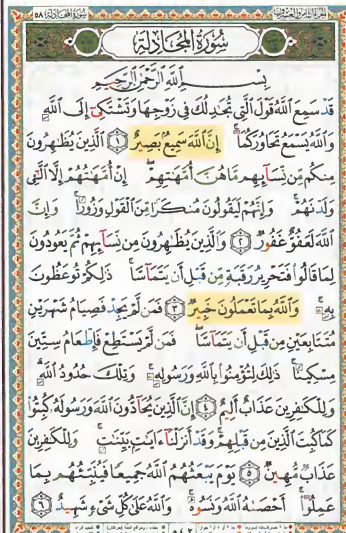 سُورَةُ المُجَادلَةِ
بِسْمِ اللَّهِ الرَّحْمَٰنِ الرَّحِيمِ
قَدْ سَمِعَ اللَّهُ قَوْلَ الَّتِي تُجَادِلُكَ فِي زَوْجِهَا وَتَشْتَكِي إِلَى اللَّهِ
وَاللَّهُ يَسْمَعُ تَحَاوُرَكُمَا ۚ إِنَّ اللَّهَ سَمِيعٌ بَصِيرٌ ١ الَّذِينَ يُظَاهِرُونَ
مِنكُم مِّن نِّسَائِهِم مَّا هُنَّ أُمَّهَاتِهِمْ ۖ إِنْ أُمَّهَاتُهُمْ إِلَّا الَّائِي
وَلَدْنَهُمْ ۚ وَإِنَّهُمْ لَيَقُولُونَ مُنكَرًا مِّنَ الْقَوْلِ وَزُورًا ۚ وَإِنَّ
اللَّهَ لَعَفُوٌّ غَفُورٌ ٢ وَالَّذِينَ يُظَاهِرُونَ مِن نِّسَائِهِمْ ثُمَّ يَعُودُونَ
لِمَا قَالُوا فَتَحْرِيرُ رَقَبَةٍ مِّن قَبْلِ أَن يَتَمَاسَّا ۚ ذَٰلِكُمْ تُوعَظُونَ
بِهِ ۚ وَاللَّهُ بِمَا تَعْمَلُونَ خَبِيرٌ ٣ فَمَن لَّمْ يَجِدْ فَصِيَامُ شَهْرَيْنِ
مُتَتَابِعَيْنِ مِن قَبْلِ أَن يَتَمَاسَّا ۖ فَمَن لَّمْ يَسْتَطِعْ فَإِطْعَامُ سِتِّينَ
مِسْكِينًا ۚ ذَٰلِكَ لِتُؤْمِنُوا بِاللَّهِ وَرَسُولِهِ ۚ وَتِلْكَ حُدُودُ اللَّهِ ۗ
وَلِلْكَافِرِينَ عَذَابٌ أَلِيمٌ ٤ إِنَّ الَّذِينَ يُحَادُّونَ اللَّهَ وَرَسُولَهُ كُبِتُوا
كَمَا كُبِتَ الَّذِينَ مِن قَبْلِهِمْ ۚ وَقَدْ أَنزَلْنَا آيَاتٍ بَيِّنَاتٍ ۚ وَلِلْكَافِرِينَ
عَذَابٌ مُّهِينٌ ٥ يَوْمَ يَبْعَثُهُمُ اللَّهُ جَمِيعًا فَيُنَبِّئُهُم بِمَا
عَمِلُوا ۚ أَحْصَاهُ اللَّهُ وَنَسُوهُ ۚ وَاللَّهُ عَلَىٰ كُلِّ شَيْءٍ شَهِيدٌ ٦